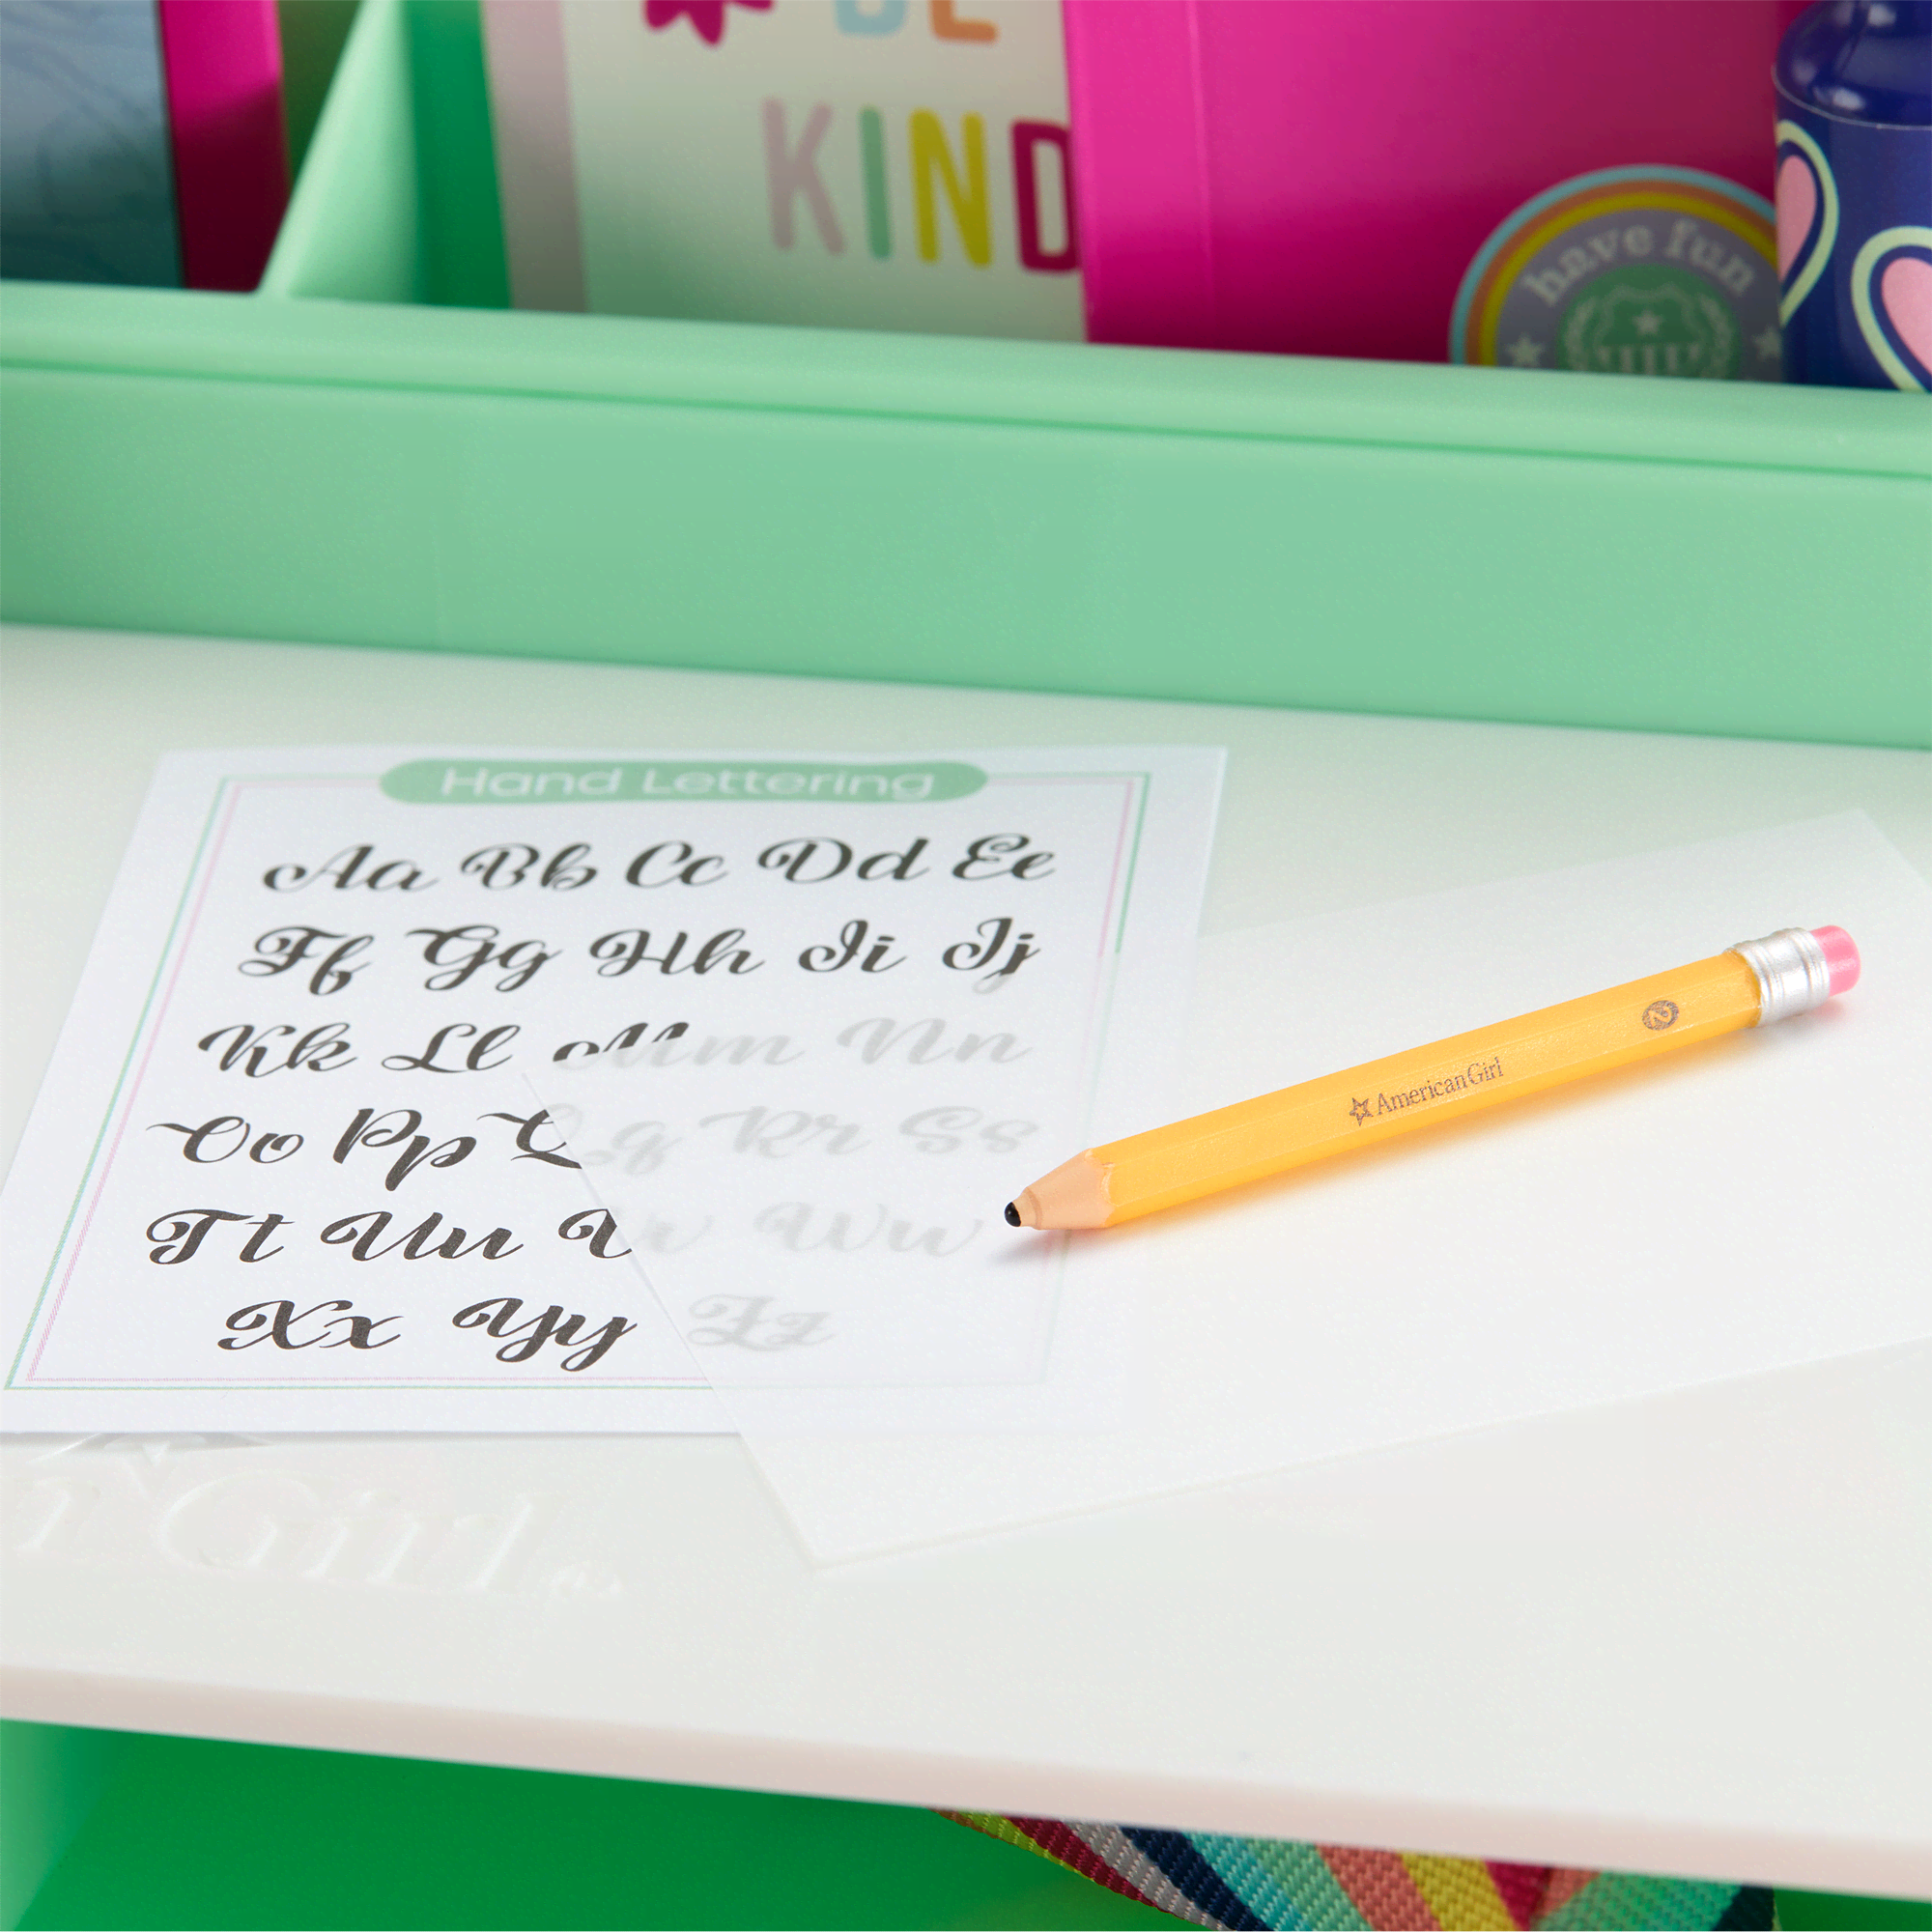 BE
KIND
have fun
Hand Lettering
Aa Bb Cc Dd Ee
Ff Gg Hh Ii Jj
Kk Ll Mm Nn
Oo Pp Qq Rr Ss
Tt Uu Vv Ww
Xx Yy Zz
American Girl 2
Girl